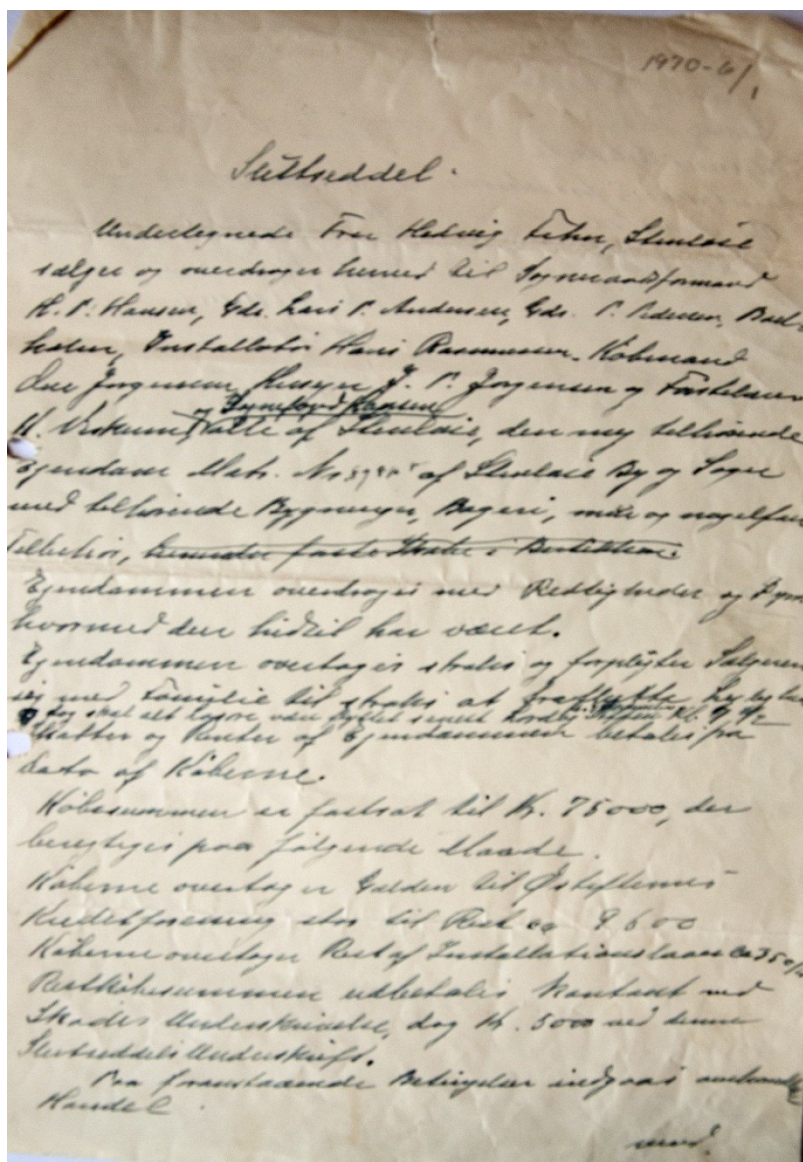 1970-6/1
Slutseddel.
Undertegnede Fru Hedvig Stenløse
sælger og overdrager herved til Sogneraadsformand
H. P. Hansen, Gdr. Lars P. Andersen, Gdr. P. Pedersen,
Installatør Hans Rasmussen. Købmand
Jørgensen, J. P. Jørgensen og
og Hansen
H. alle af Stenløse, den mig tilhørende
Ejendom Matr. No af Stenløse By og Sogn
med tilhørende Bygninger, Bageri, mur og nagelfast
Tilbehør,
Ejendommen overdrages med Rettigheder og
hvormed den hidtil har været.
Ejendommen overtages straks og forpligter Sælgeren
sig med Familie til straks at fraflytte
dog skal alt være flyttet senest Kl.
Skatter og Renter af Ejendommen betales fra
Dato af Køberne.
Købesummen er fastsat til Kr. 75000, der
berigtiges paa følgende Maade.
Køberne overtager Gælden til Østifternes
Kreditforening stor til Rest ca 9600
Køberne overtager Rest af Installationslaan ca 350
Restkøbesummen udbetales kontant ved
Skødes Underskrivelse, dog Kr. 5000 ved denne
Slutseddels Underskrift.
Paa foranstaaende Betingelser indgaas
Handel.